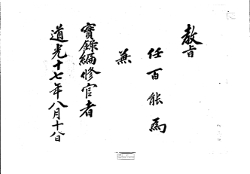 敎旨
任百能爲
兼
實錄編修官者
道光十七年八月十八日